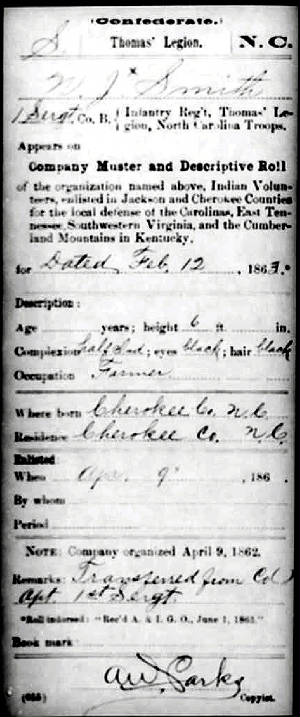 (Confederate.)
S. Thomas' Legion. N. C.
Smith
1 Sergt. Co. B, { Infantry Reg't, Thomas' Le-
gion, North Carolina Troops.
Appears on
Company Muster and Descriptive Roll
of the organization named above, Indian Volun-
teers, enlisted in Jackson and Cherokee Counties
for the local defense of the Carolinas, East Ten-
nessee, Southwestern Virginia, and the Cumber-
land Mountains in Kentucky,
for Dated Feb. 12, 1863.*
Description:
Age years; height 6 ft. in.
Complexion half ; eyes black; hair black
Occupation Farmer
Where born Cherokee Co. N.C.
Residence Cherokee Co. N.C.
Enlisted:
When Apr. 9, 186 .
By whom
Period
NOTE: Company organized April 9, 1862.
Remarks: Transferred from Co.
Apt. 1st Sergt.
*Roll indorsed: "Rec'd A. & I. G. O., June 1, 1863."
Book mark
(655) Copyist.